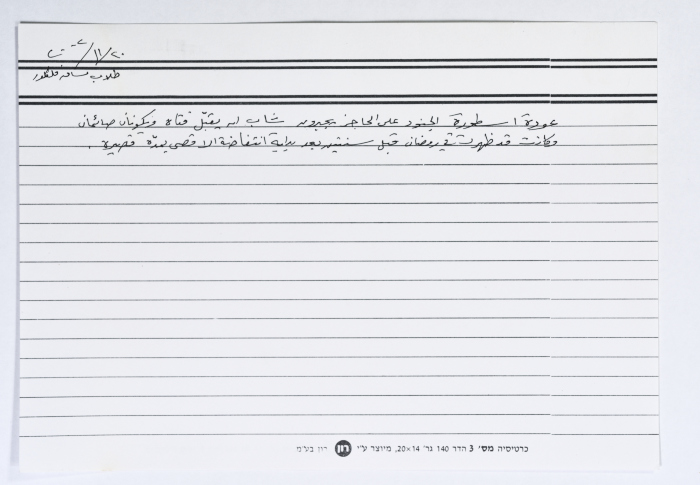 ٢٠/١١/٢٠٠٢
طلاب مساق فلكلور
عودة اسطورة الجنود على الحاجز يجبرون شاب ان يقبّل فتاه ويكونان صائمان
وكانت قد ظهرت في رمضان قبل سنتين بعد بداية انتفاضة الاقصى بمدّة قصيرة .
כרטיסיה מס׳ 3 הדר 140 גר׳ 14×20, מיוצר ע״י רון רון בע״מ